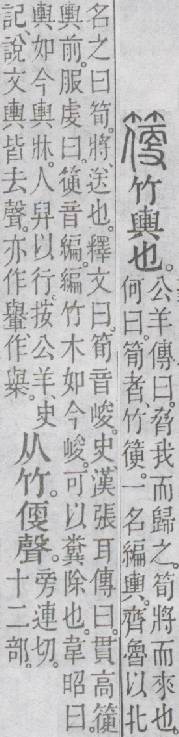 箯
竹輿也。
公羊傳曰。脅我而歸之。筍將而來也。
何曰。筍者、竹箯。一名編輿。齊魯以北
名之曰筍。將、送也。釋文曰。筍音峻。史漢張耳傳曰。貫高箯
輿前。服虔曰。箯音編。編竹木如今峻。可以糞除也。韋昭曰。
輿如今輿牀。人舁以行。按公羊、史
記、說文輿皆去聲。亦作轝作
从竹。便聲。
旁連切。
十二部。